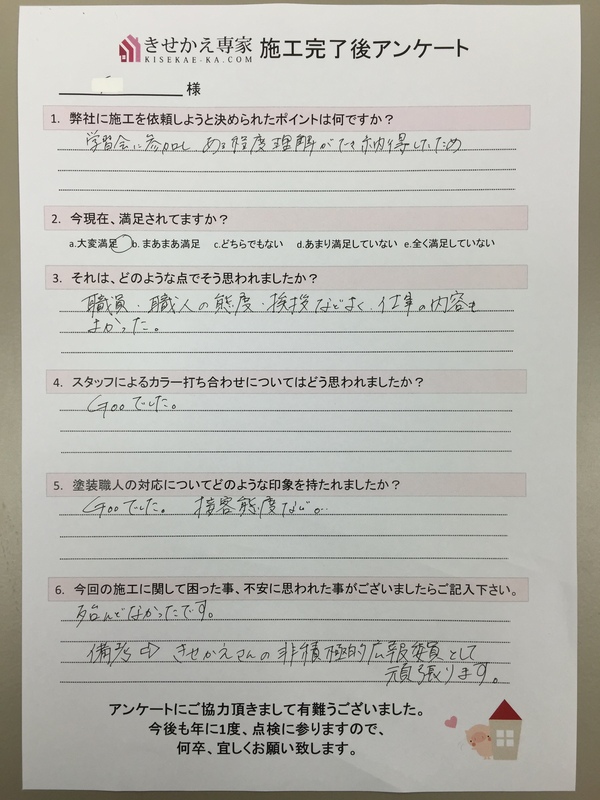 きせかえ専家 施工完了後アンケート
KISEKAE-KA.COM
様
1. 弊社に施工を依頼しようと決められたポイントは何ですか？
学習会に参加し ある程度理解ができ納得したため
2. 今現在、満足されてますか？
a.大変満足 b. まあまあ満足 c.どちらでもない d.あまり満足していない e.全く満足していない
3. それは、どのような点でそう思われましたか？
職員・職人の態度・挨拶などよく 仕事の内容も
よかった。
4. スタッフによるカラー打ち合わせについてはどう思われましたか？
Gooでした。
5. 塗装職人の対応についてどのような印象を持たれましたか？
Gooでした。 接客態度など。
6. 今回の施工に関して困った事、不安に思われた事がございましたらご記入下さい。
殆んどなかったです。
備考⇨ きせかえさんの非積極的広報委員として
頑張ります。
アンケートにご協力頂きまして有難うございました。
今後も年に1度、点検に参りますので、
何卒、宜しくお願い致します。